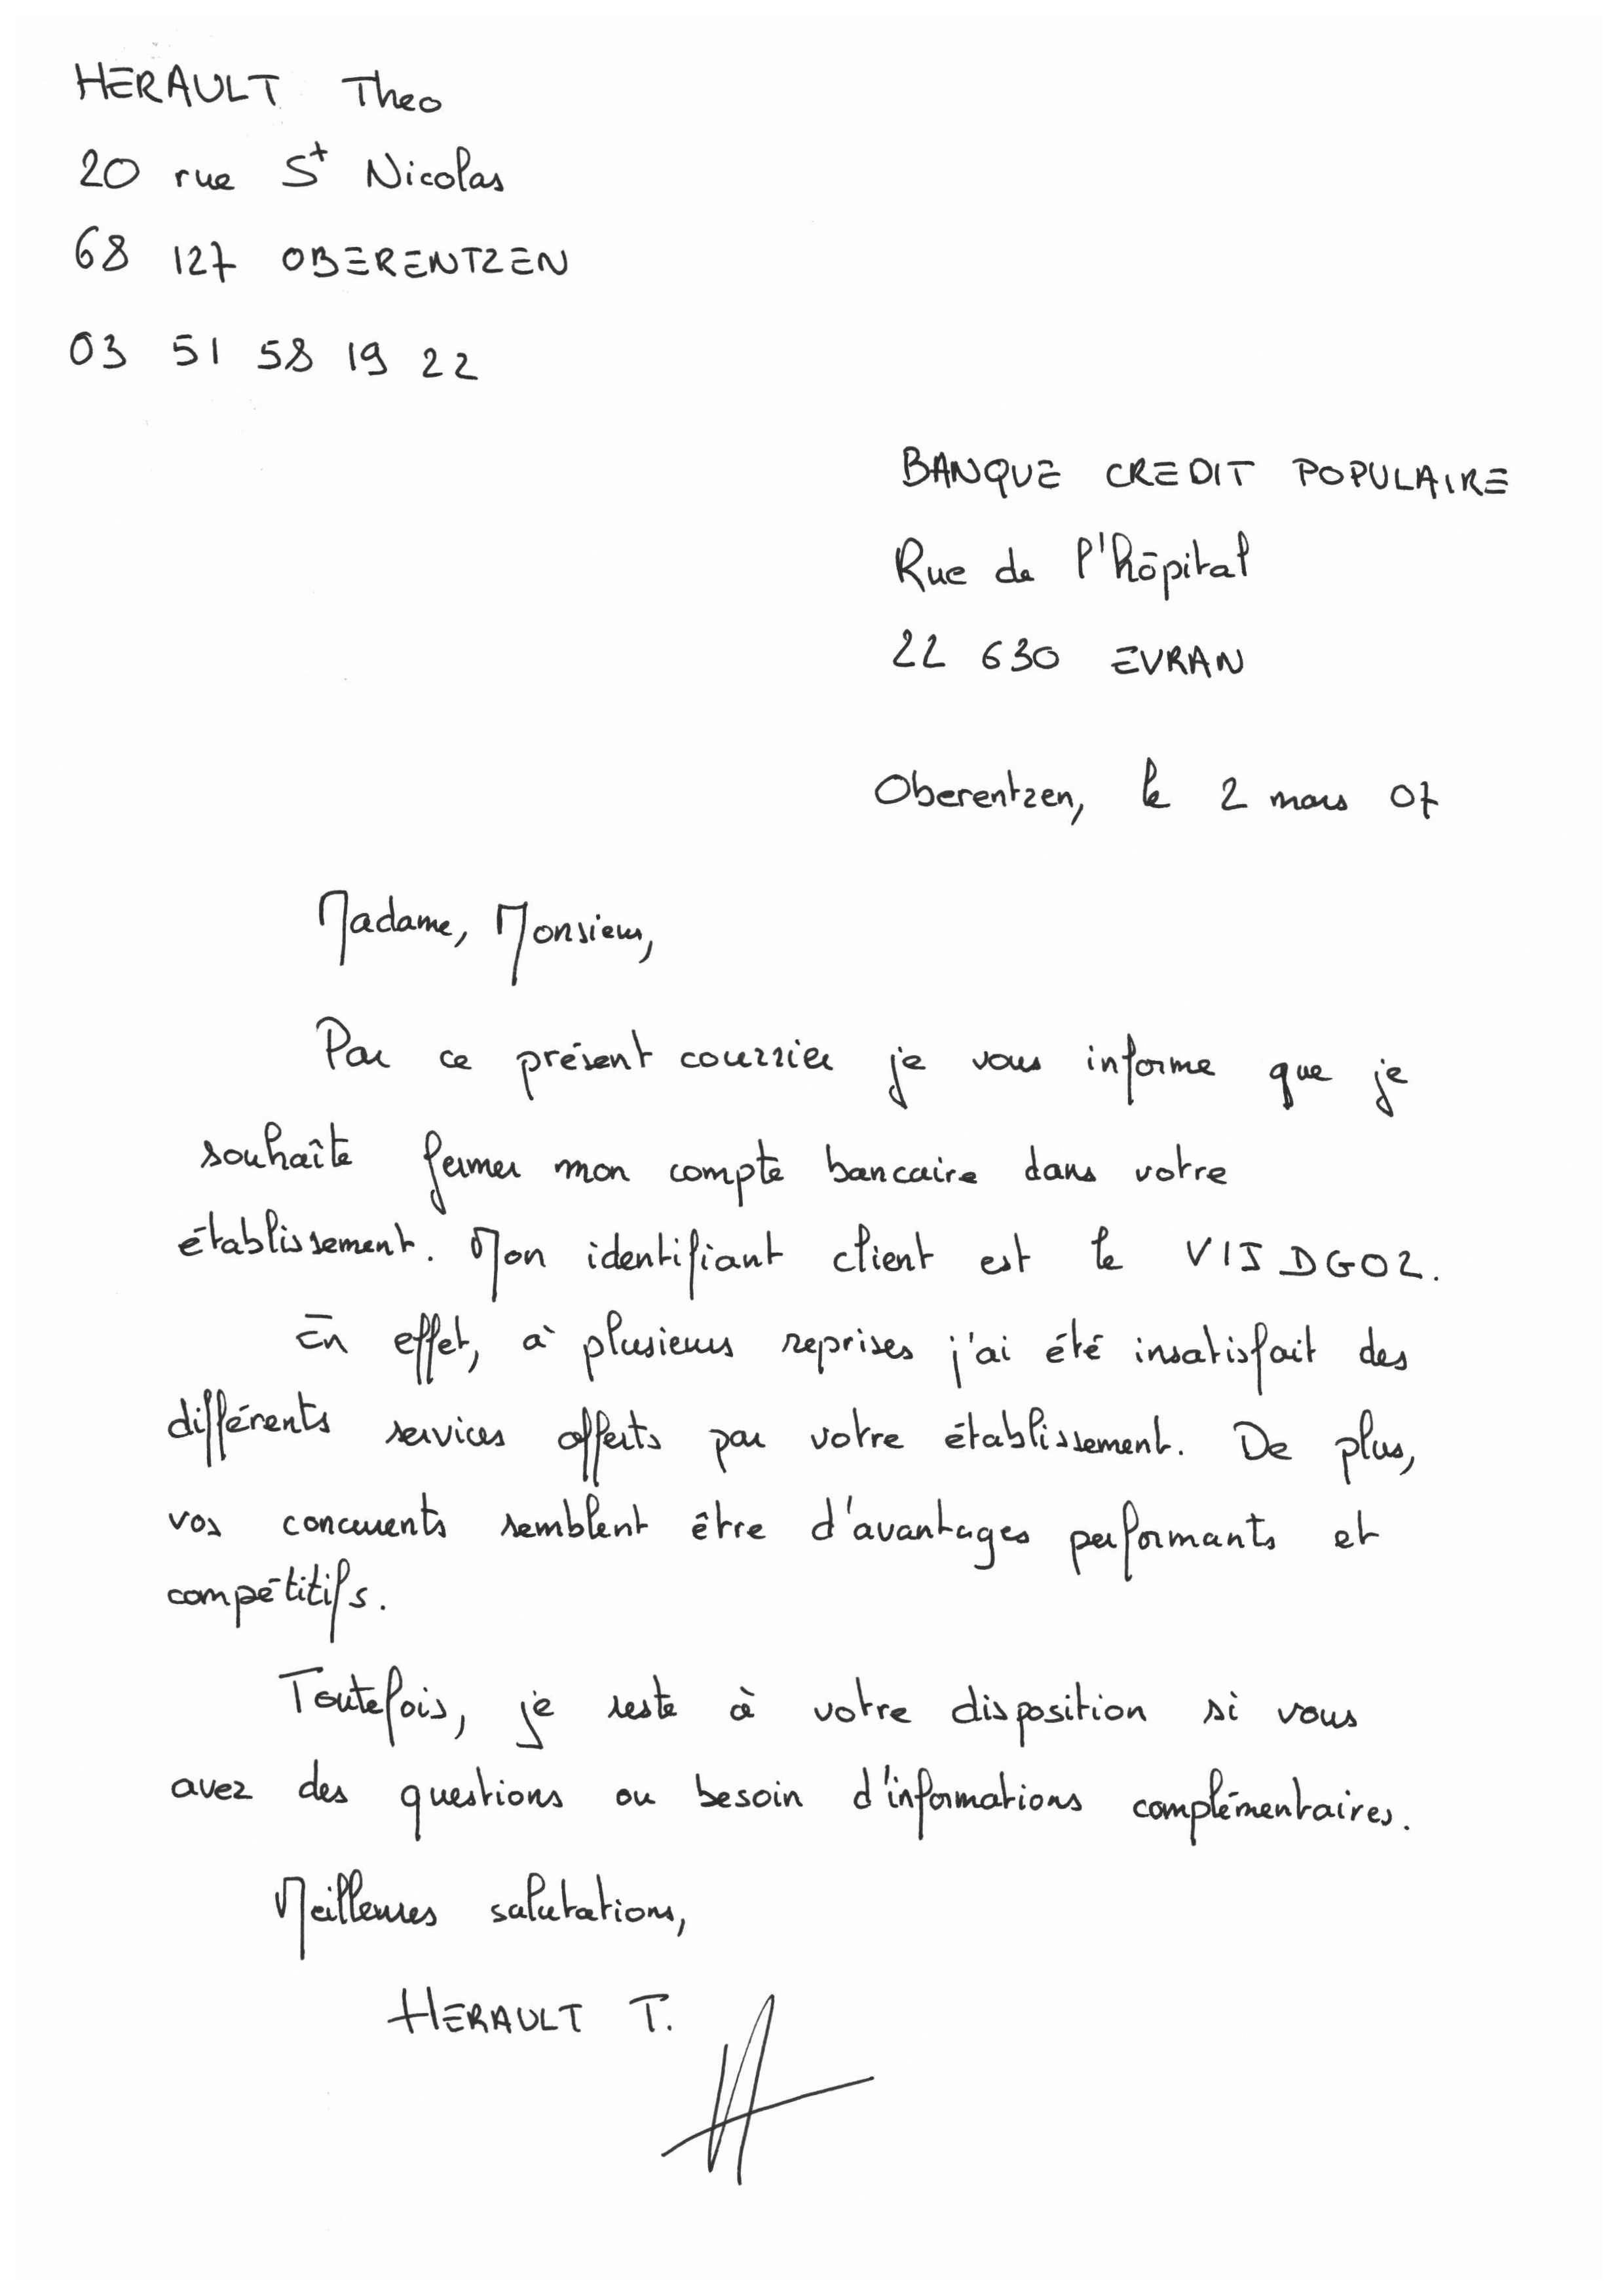 HERAULT Theo
20 rue St Nicolas
68 127 OBERENTZEN
03 51 58 19 22
BANQUE CREDIT POPULAIRE
Rue de l'hôpital
22 630 EVRAN
Oberentzen, le 2 mars 07
Madame, Monsieur,
Par ce présent courrier je vous informe que je
souhaîte fermer mon compte bancaire dans votre
établissement. Mon identifiant client est le VISDG02.
En effet, à plusieurs reprises j'ai été insatisfait des
différents services offerts par votre établissement. De plus,
vos concurrents semblent être d'avantages performants et
compétitifs.
Toutefois, je reste à votre disposition si vous
avez des questions ou besoin d'informations complémentaires.
Meilleures salutations,
HERAULT T.